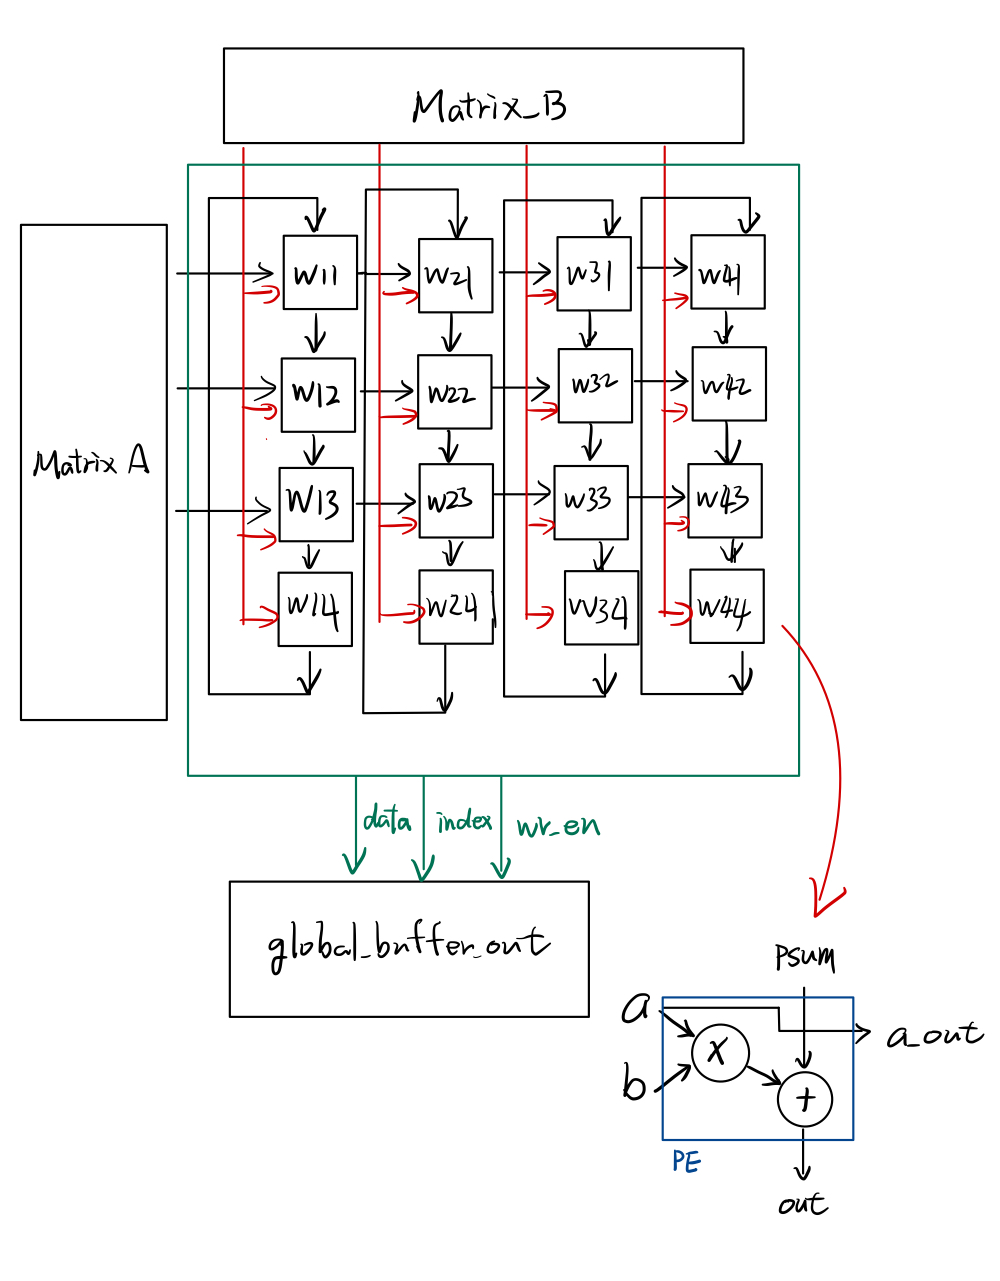 Matrix_B
Matrix A
W11 W21 W31 W41
W12 W22 W32 W42
W13 W23 W33 W43
W14 W24 W34 W44
data index wr_en
global_buffer_out
Psum
a
a_out
X
b
+
PE
out